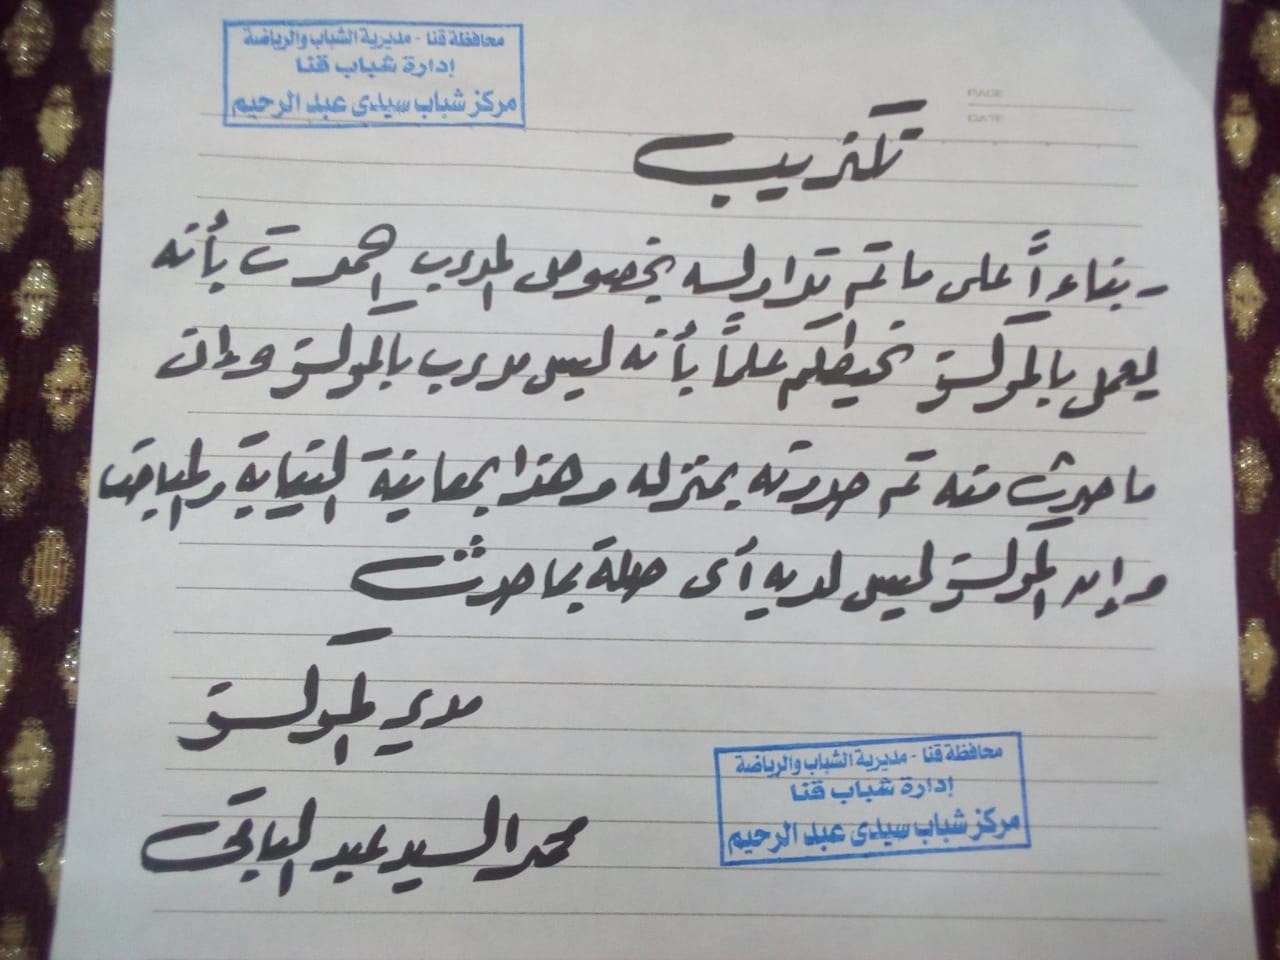 محافظة قنا - مديرية الشباب والرياضة
إدارة شباب قنا
مركز شباب سيدى عبد الرحيم
PAGE
DATE
تكذيب
- بناءاً على ما تم تداوله بخصوص المدرب بأنه
يعمل بالمركز نحيطكم علماً بأنه ليس مدرب بالمركز وإن
ما حدث منه تم حدوثه بمنزله وهذا بمعاينة النيابة والمباحث
وإن المركز ليس لديه أى صلة بما حدث
مدير المركز
محمد السيد عبد الباقى
محافظة قنا - مديرية الشباب والرياضة
إدارة شباب قنا
مركز شباب سيدى عبد الرحيم